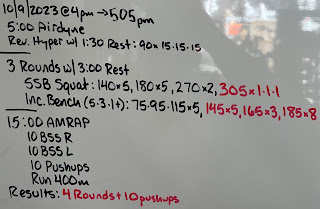 10/9/2023 @ 4pm → 505pm
5:00 Airdyne
Rev. Hyper w/ 1:30 Rest: 90x15·15·15
3 Rounds w/ 3:00 Rest
SSB Squat: 140x5, 180x5, 270x2, 305x1·1·1
Inc. Bench (5·3·1+): 75·95·115x5, 145x5, 165x3, 185x8
15:00 AMRAP
10 BSS R
10 BSS L
10 Pushups
Run 400m
Results: 4 Rounds + 10 pushups